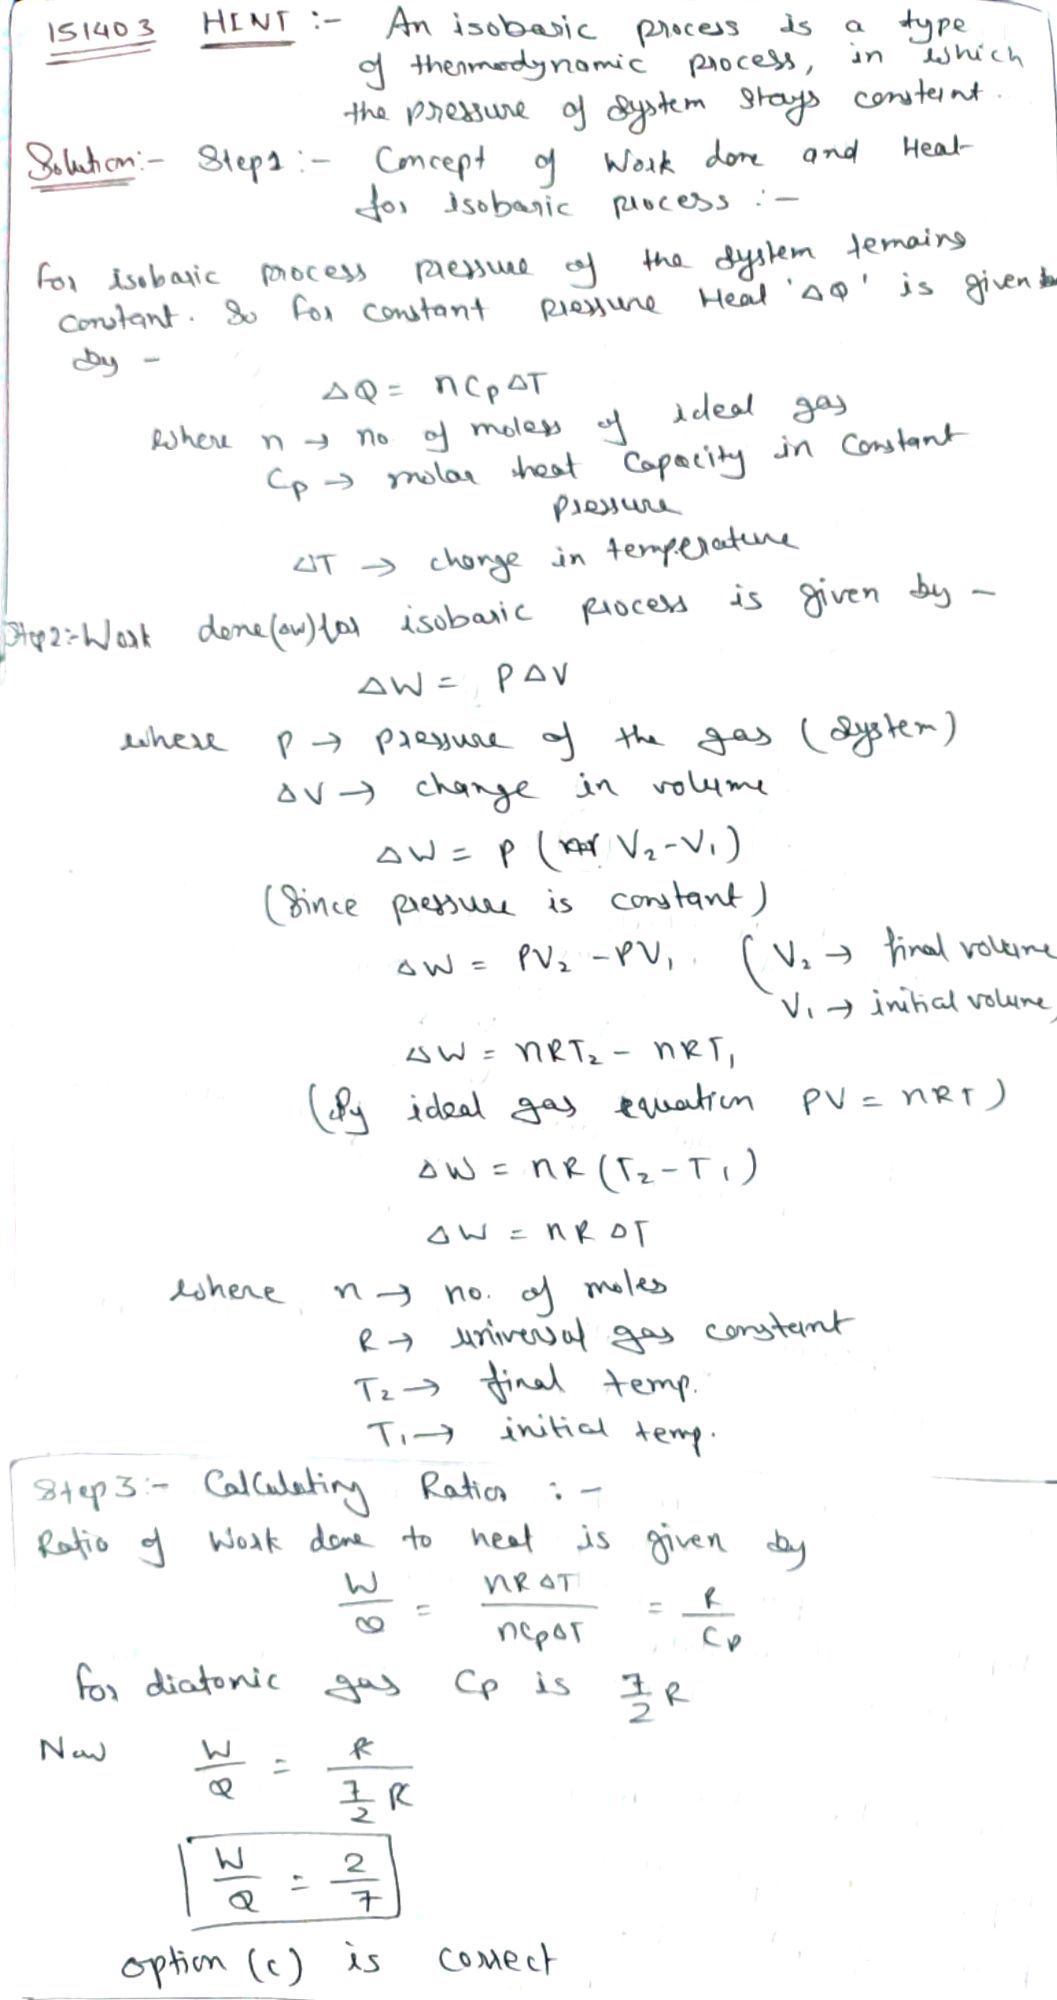 151403 HINT :- An isobaric process is a type
of thermodynamic process, in which
the pressure of system stays constant.
Solution:- Step1 :- Concept of Work done and Heat
for isobaric process :-
for isobaric process pressure of the system remains
constant. So for constant pressure Heat 'ΔQ' is given
by -
ΔQ = nCpΔT
where n → no. of moles of ideal gas
Cp → molar heat capacity in constant
pressure
ΔT → change in temperature
Step2:- Work done(ΔW) for isobaric process is given by -
ΔW = PΔV
where P → pressure of the gas (system)
ΔV → change in volume
ΔW = P (V₂-V₁)
(Since pressure is constant)
ΔW = PV₂ - PV₁ (V₂ → final volume
V₁ → initial volume)
ΔW = nRT₂ - nRT₁
(By ideal gas equation PV = nRT)
ΔW = nR(T₂-T₁)
ΔW = nRΔT
where n → no. of moles
R → universal gas constant
T₂ → final temp.
T₁ → initial temp.
Step3:- Calculating Ratios :-
Ratio of Work done to heat is given by
W/Q = nRΔT/nCpΔT = R/Cp
for diatonic gas Cp is 7/2 R
Now W/Q = R/(7/2 R)
W/Q = 2/7
option (c) is correct